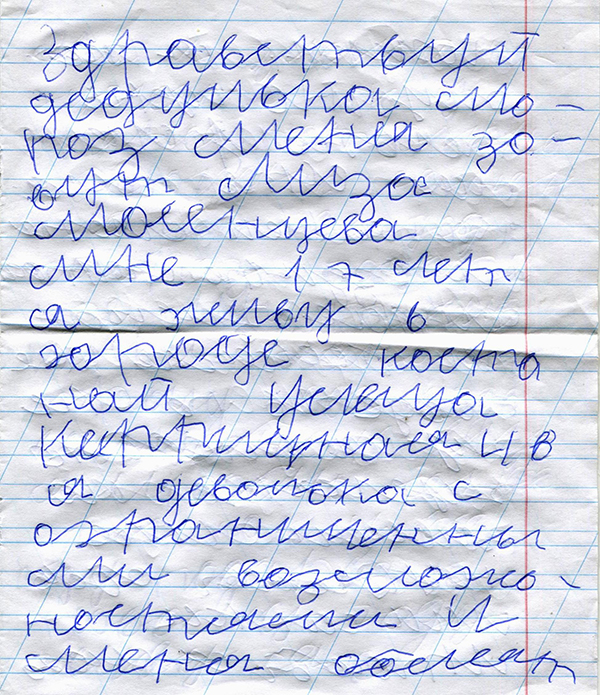 здравствуй
дедушька мо-
роз меня зо-
вут Лиза
Моленцева
мне 17 лет
я жыву в
городе коста
най улеца
Кирпичная 4 в
я девоцка с
ограниченны
ми возможно-
ностями и
меня